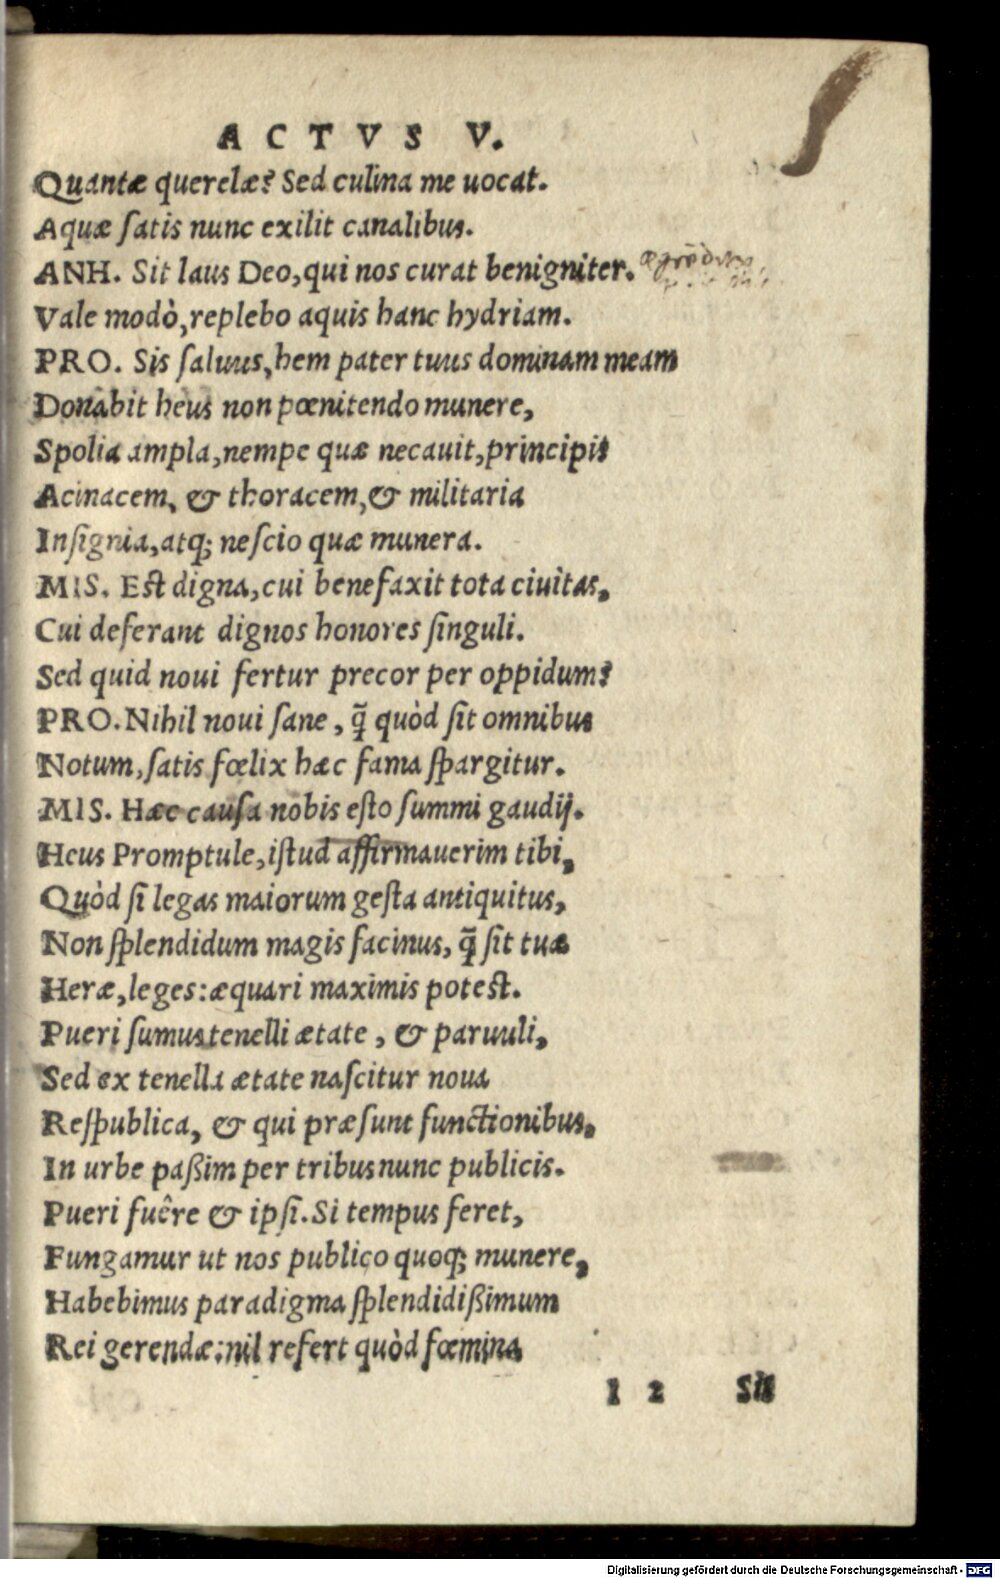 ACTVS V.
Quantæ querelæ? Sed culina me uocat.
Aquæ ſatis nunc exilit canalibus.
ANH. Sit laus Deo, qui nos curat benigniter.
Vale modò, replebo aquis hanc hydriam.
PRO. Sis ſaluus, hem pater tuus dominam meam
Donabit heus non pœnitendo munere,
Spolia ampla, nempe quæ necauit, principis
Acinacem, & thoracem, & militaria
Inſignia, atq; neſcio quæ munera.
MIS. Eſt digna, cui benefaxit tota ciuitas,
Cui deferant dignos honores ſinguli.
Sed quid noui fertur precor per oppidum?
PRO. Nihil noui ſane, q̃ quòd ſit omnibus
Notum, ſatis fœlix hæc fama ſpargitur.
MIS. Hæc cauſa nobis eſto ſummi gaudij.
Heus Promptule, iſtud affirmauerim tibi,
Quòd ſi legas maiorum geſta antiquitus,
Non ſplendidum magis facinus, q̃ ſit tuæ
Heræ, leges: æquari maximis poteſt.
Pueri ſumus tenelli ætate, & paruuli,
Sed ex tenella ætate naſcitur noua
Reſpublica, & qui præſunt functionibus,
In urbe paßim per tribus nunc publicis.
Pueri fuêre & ipſi. Si tempus feret,
Fungamur ut nos publico quoq; munere,
Habebimus paradigma ſplendidißimum
Rei gerendæ: nil refert quòd fœmina
I 2 Sit
Digitalisierung gefördert durch die Deutsche Forschungsgemeinschaft - DFG